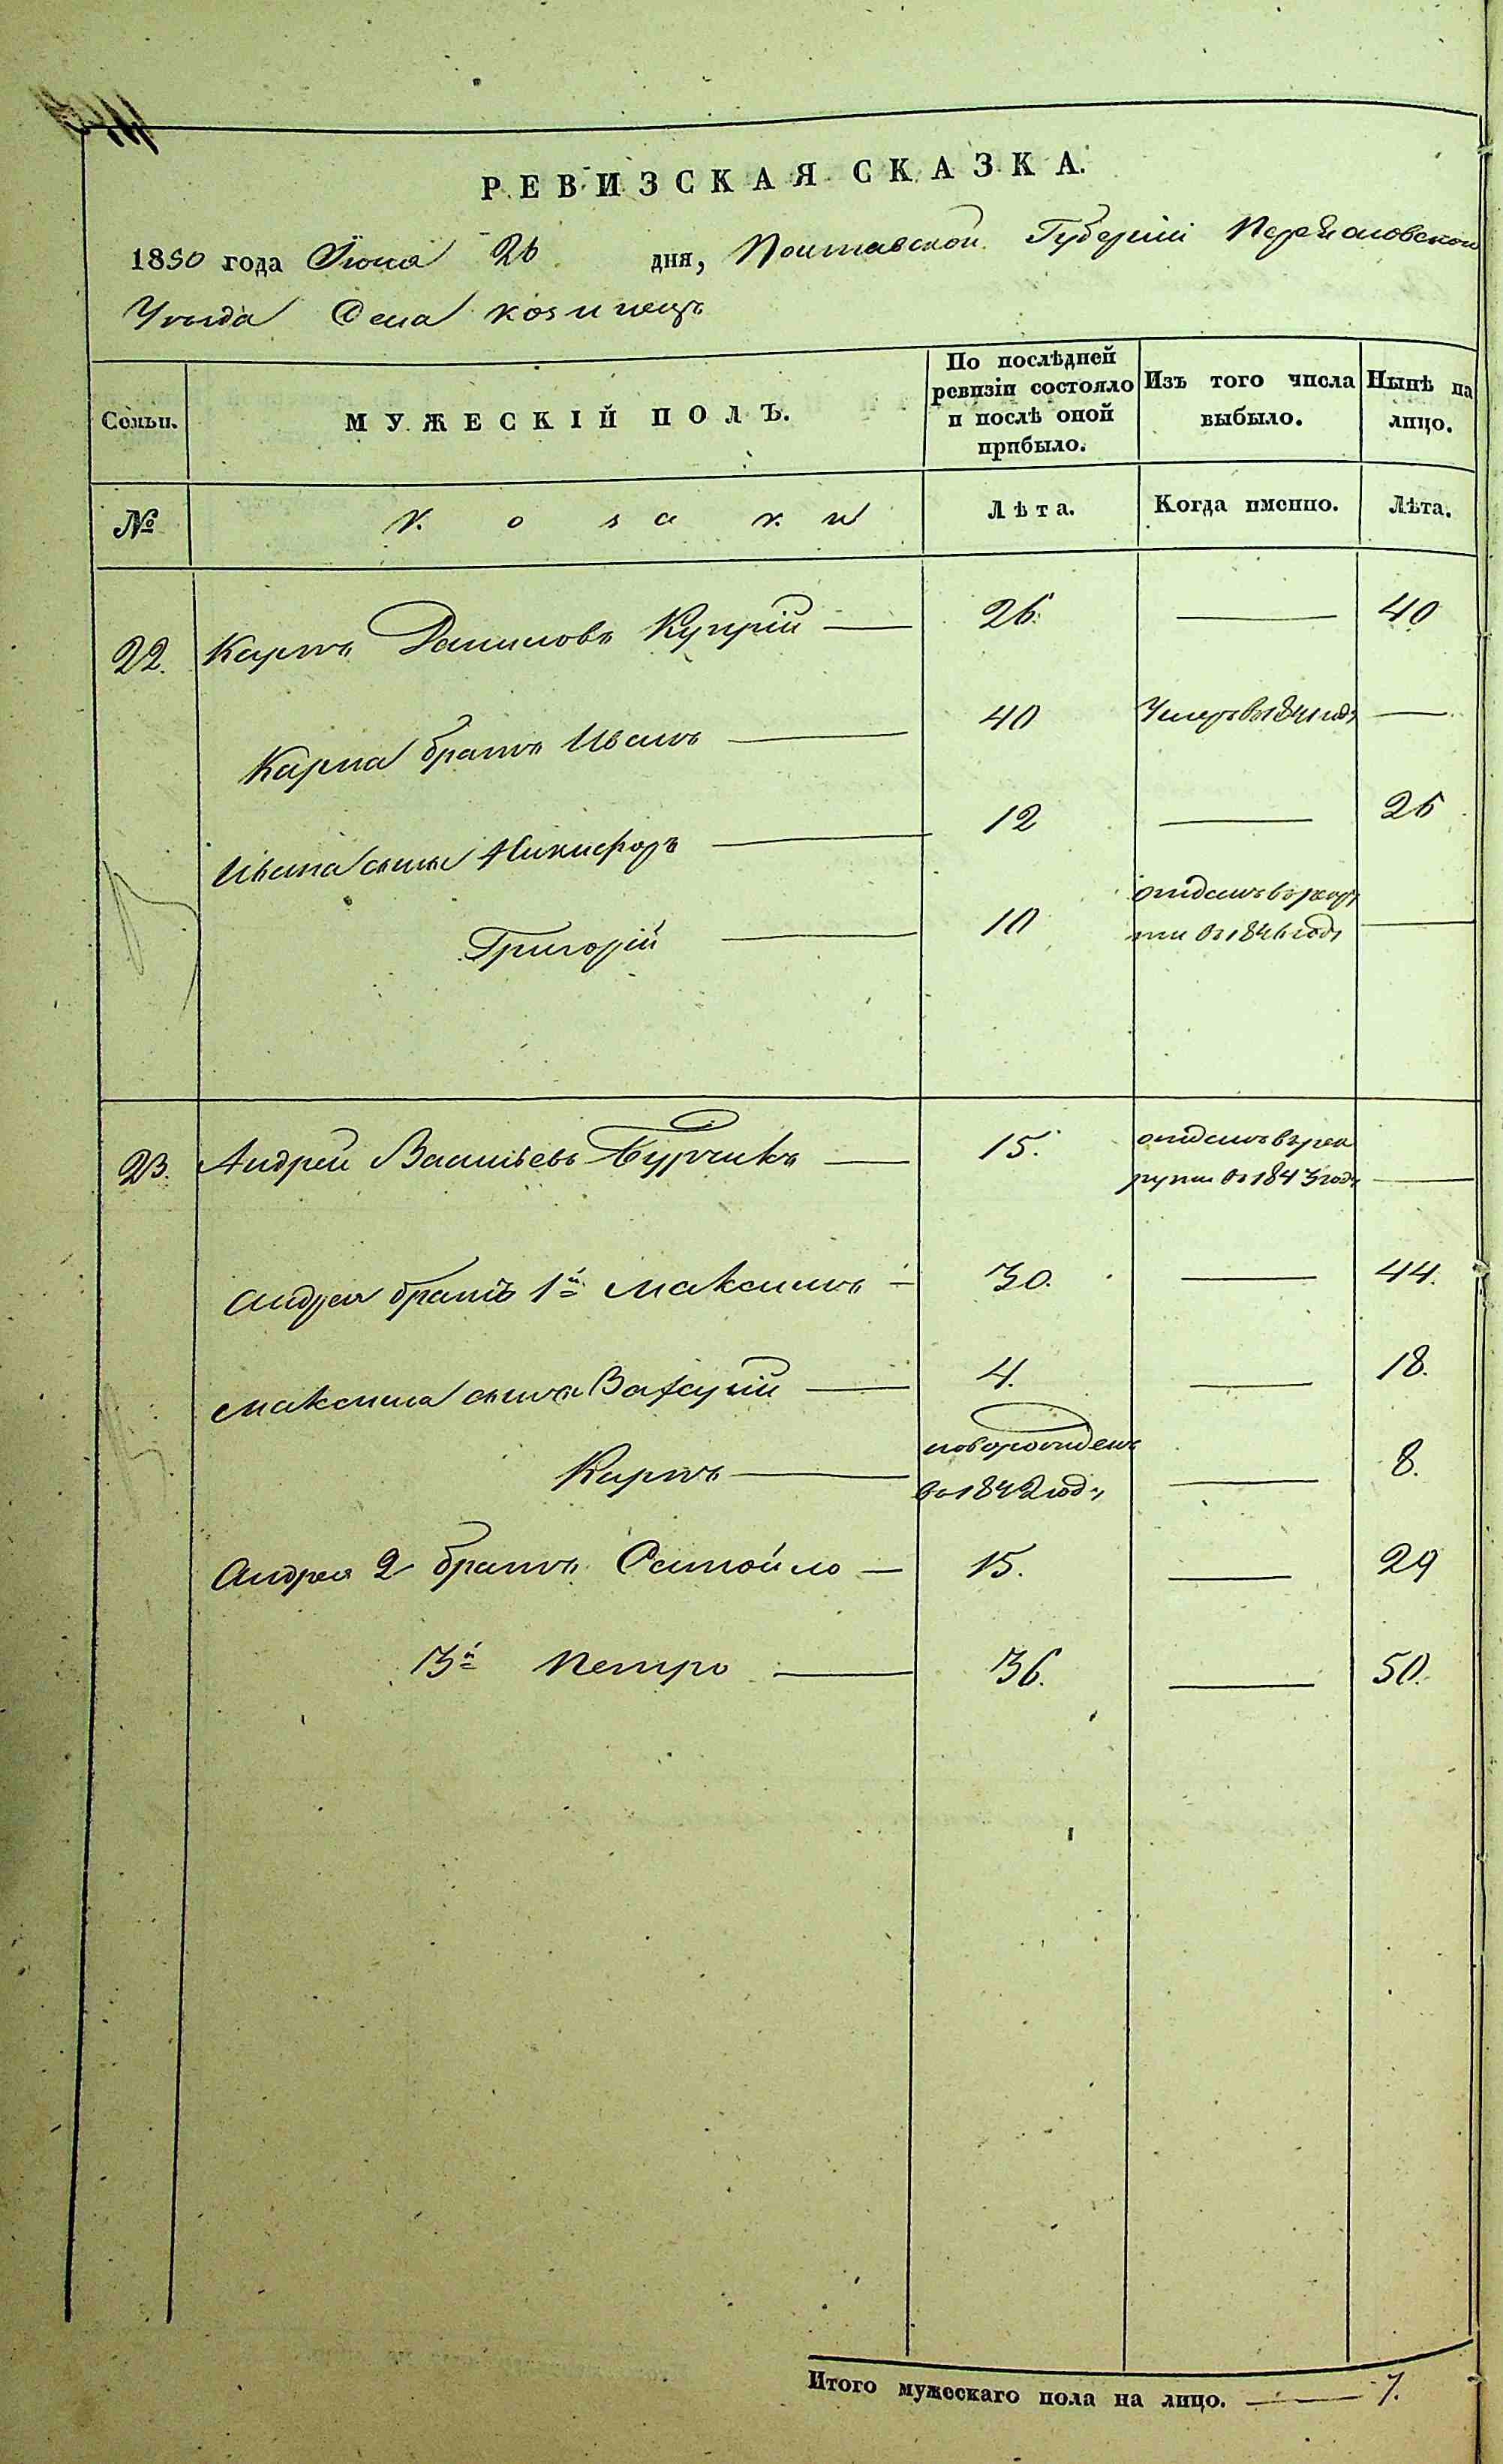 РЕВИЗСКАЯ СКАЗКА.
1850 года Июня 26 дня, Полтавской Губерніи Переяславской
Уезда Села козинецъ
Семьи. МУЖЕСКІЙ ПОЛЪ. По послѣдней ревизіи состояло и послѣ оной прибыло. Изъ того числа выбыло. Нынѣ на лицо.
№ Козаки Лѣта. Когда именно. Лѣта.
22. Карпъ Даниловъ Куприй — 26. — 40
Карпа братъ Иванъ — 40 Умеръ въ 1841 году —
Ивана сыны Никифоръ — 12 — 26
Григорій — 10 отданъ въ рекруты въ 1846 году —
23. Андрей Василіевъ Бурчикъ — 15. отданъ въ рекруты въ 1843 году —
Андрея братъ 1й Максимъ — 30. — 44.
Максима сыны — 4. — 18.
Карпъ — новорожденъ въ 1842 году — 8.
Андрея 2 братъ Самойло — 15. — 29
3й Петро — 36. — 50.
Итого мужескаго пола на лицо. — 7.